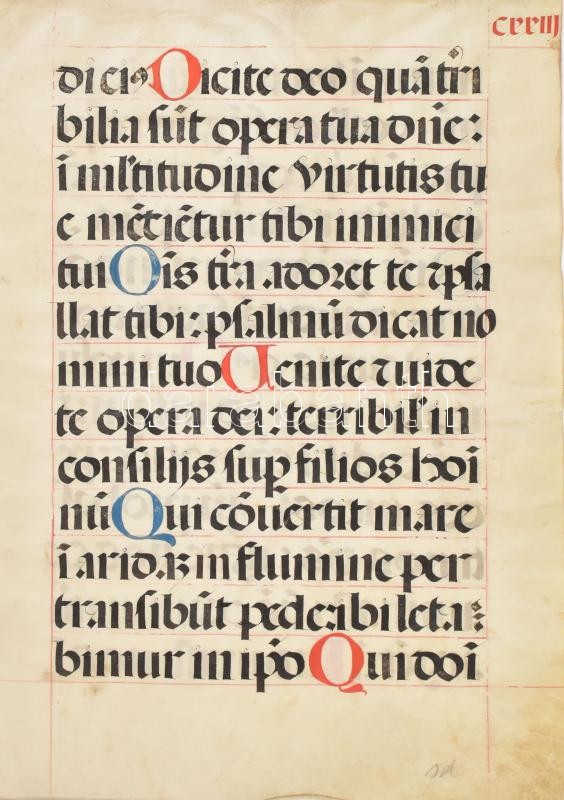 cxxiij
dicis Dicite deo quā tr̄i
bilia sūt opera tua dn̄e:
ī ml'titudine virtutis tu
e mētiētur tibi inimici
tui Oīs tr̄a adoret te ⁊ psa
llat tibi: psalmū dicat no
mini tuo Uenite ⁊ uide
te opera dei: terribil' in
consilijs sup̱ filios hoī
nū Qui cōuertit mare
ī aridā ꝫ in flumine per
transibūt pede: ibi leta:
bimur in ip̄o Qui doī
darabanth
sd